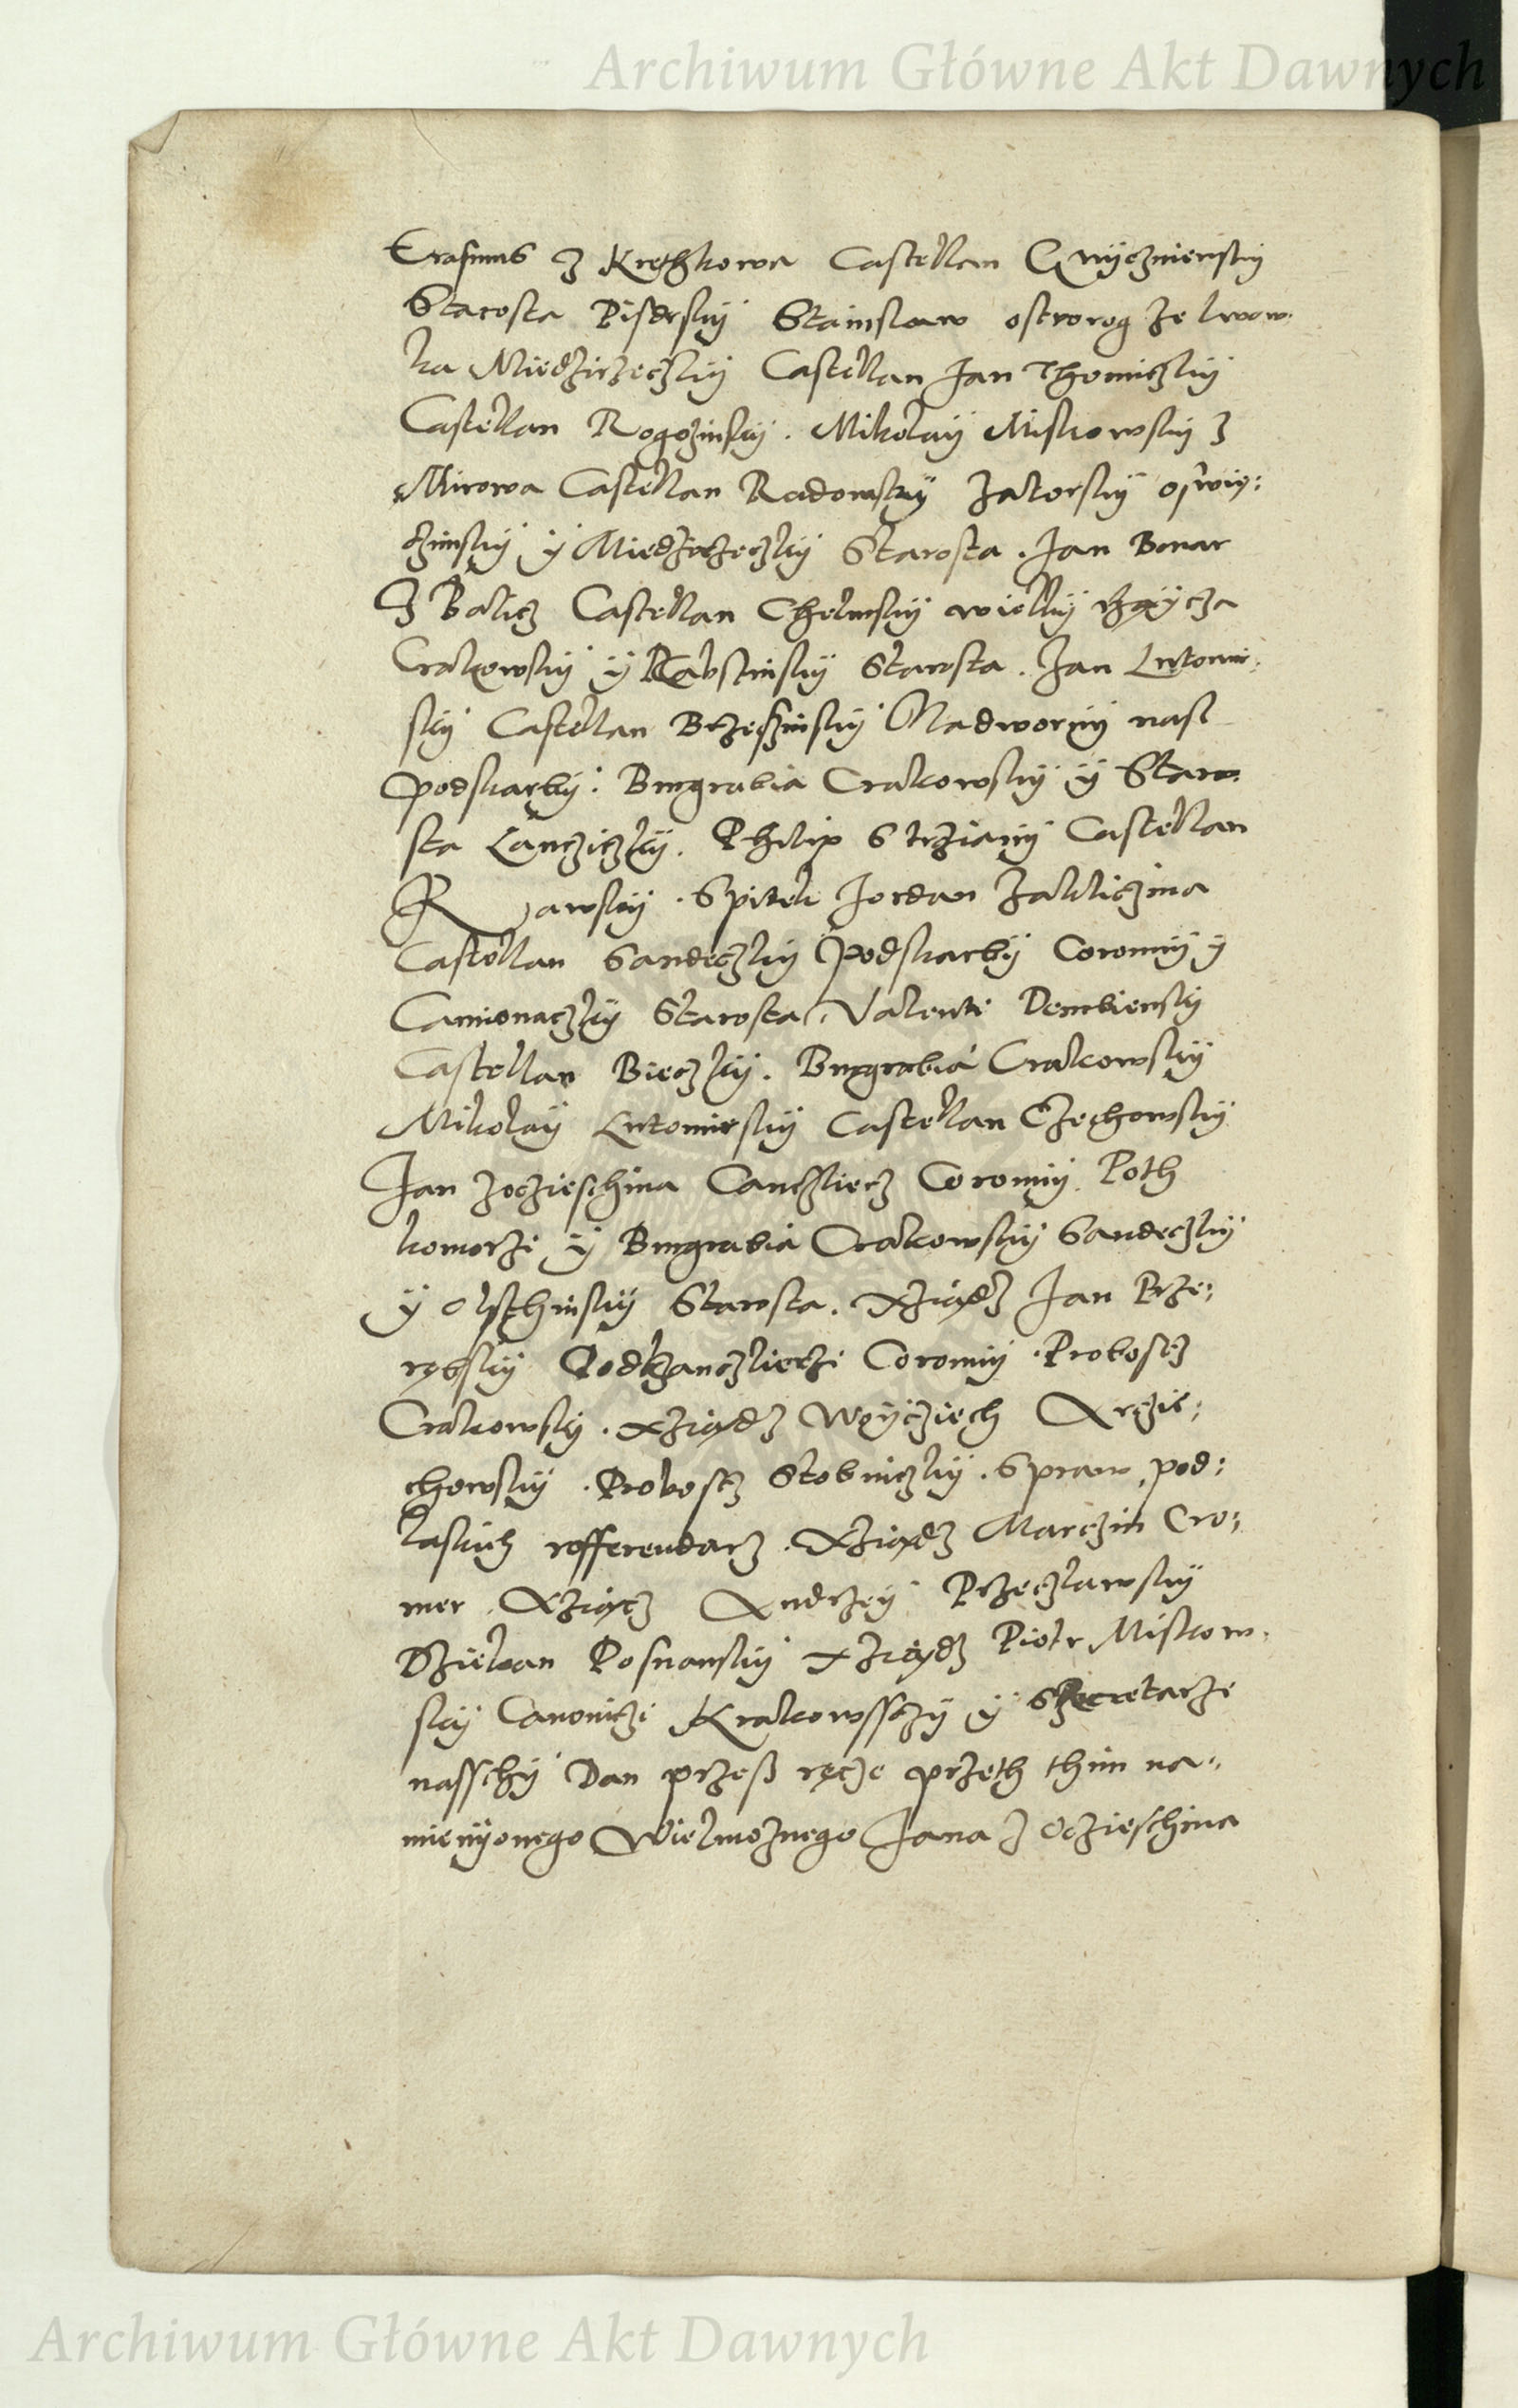 Archiwum Główne Akt Dawnych
Erasmus z Kręthkowa Castellan Gnyeznienskij
Starosta Pisderskij Stainslaw ostrorog ze lwow
ka Miedzirzeczkij Castellan Jan Thomiczkij
Castellan Rogozinskij. Mikolaij Miskowskij z
Mirowa Castellan Radomskij Zatorskij oswię:
cimskij ij Miedzirzeczkij Starosta. Jan Bonar
Z Balicz Castellan Chelmskij wielkij rządcza
Crakowskij ij Rabstinskij Starosta. Jan Lutomir:
skij Castellan Brzezinskij Nadwornij nasz
podskarbij: Burgrabia Crakowskij ij Staro
sta Lancziczkij. Philip Strziani Castellan
Rawskij. Spitek Jordan Zakliczina
Castellan Sandeczkij Podskarbij Coronnij ij
Camionaczkij Starosta, Valenti Dembienskij
Castellan Bieczkij. Burgrabia Crakowskij
Mikolaij Lutomirskij Castellan Czechowskij
Jan Zoczieschina Canczlierz Coronnij. Poth
komorzi ij Burgrabia Crakowskij Sandeczkij
ij Olschinskij Starosta. Xziądz Jan Prze:
rębskij Podkanczlierzi Coronnij. Proboscz
Crakowskij. Xziądz Woijcziech Krziс:
chowskij. Proboscz Stobniczkij. Spraw pod:
laskich refferendarz. Xziądz Marczin Cro:
mer. Xziącz Andrzeij Przeczlawskij
Dziekan Posnanskij Xziądz Piotr Miskow.
skij Canoniczi Krakowssczij ij Secretarze
nasschij Dan przesz ręcze przeth thim na:
mienijonego Wielmoznego Jana z Oczieschina
Archiwum Główne Akt Dawnych